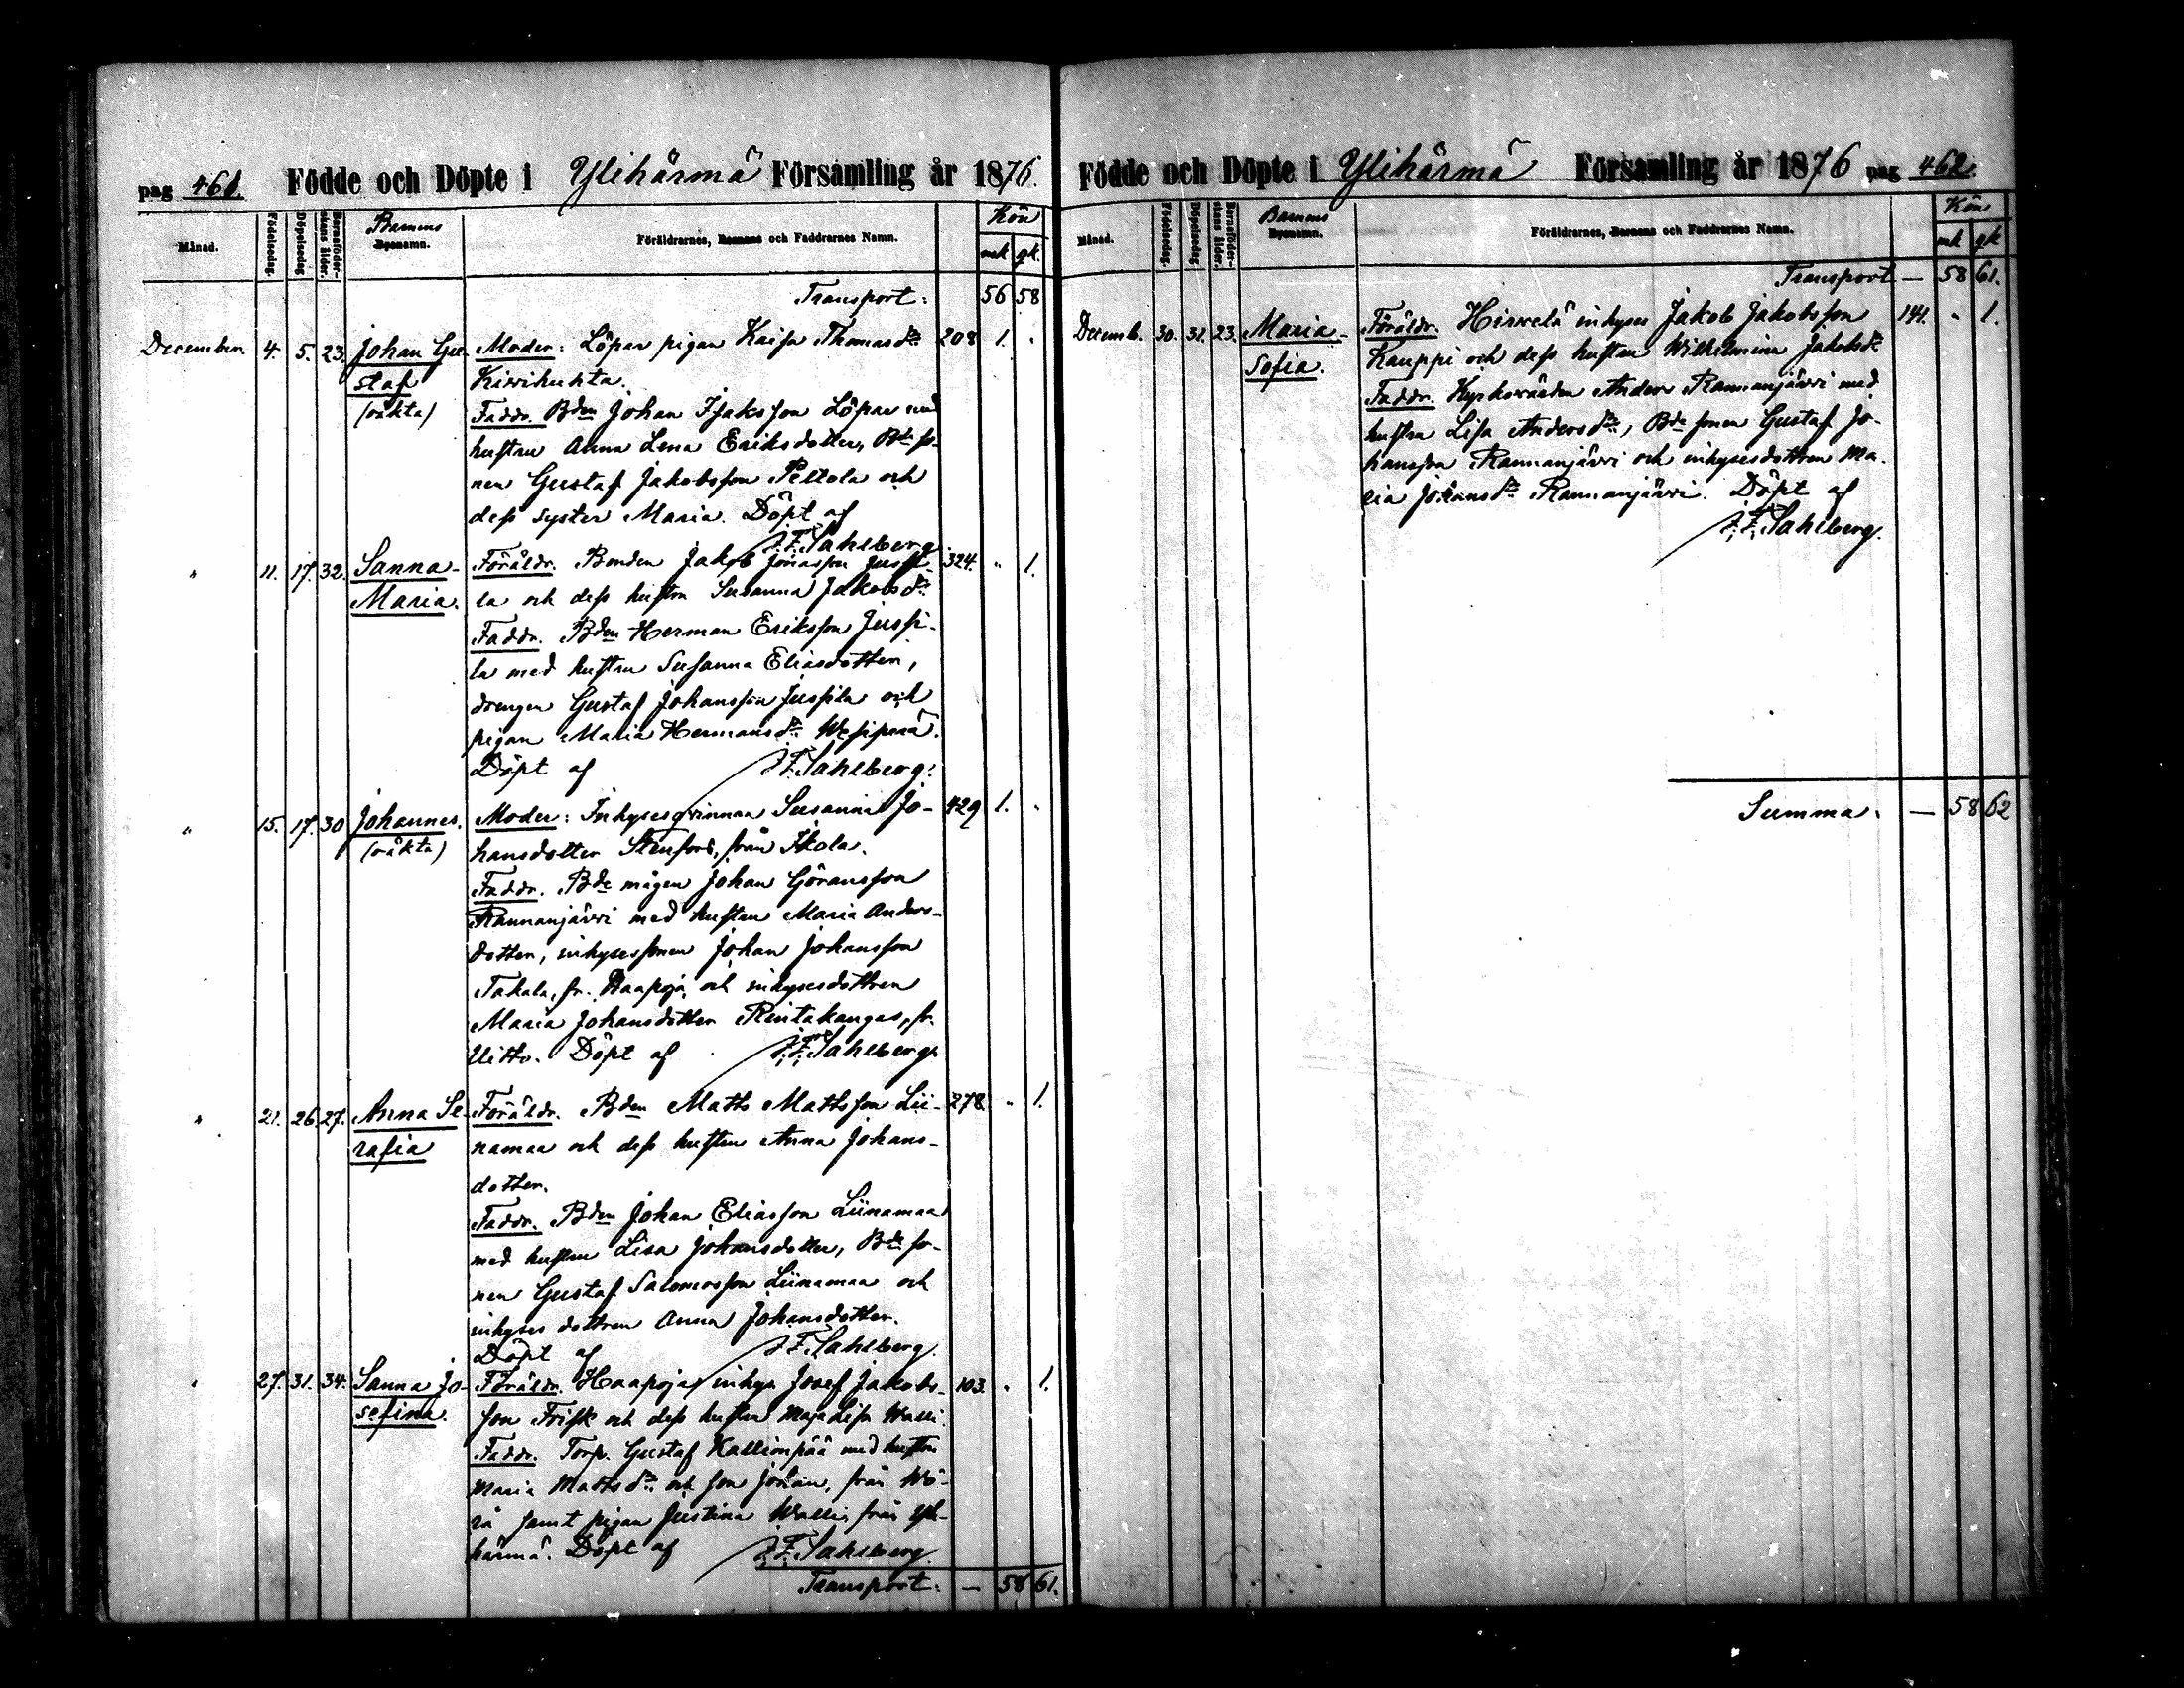 pag 461. Födde och Döpte i Ylihärmä Församling år 1876.
Månad. Födelsedag. Döpelsedag Barnaföderskans ålder. Barnens Byenamn. Föräldrarnes, Barnens och Faddrarnes Namn. Kön
mk qk.
Transport: 56 58
December. 4. 5. 23. Johan Gu- Moder: Löpar pigan Kaisa Thomasdr 208 1. "
staf Kiwihuhta.
(oäkta) Faddr. Bden Johan Isaksson Löpar med
hustru Anna Lena Eriksdotter, Bdeso-
nen Gustaf Jakobsson Peltola och
dess syster Maria. Döpt af
J.F. Sahlberg
" 11. 17. 32. Sanna- Föräldr. Bonden Jakob Jonasson Jussi- 324. " 1.
Maria. la och dess hustru Susanna Jakobsdr
Faddr. Bden Herman Eriksson Jussi-
la med hustru Susanna Eliasdotter,
drengen Gustaf Johansson Jussila och
pigan Maria Hermansdr Wesipää.
Döpt af J.F. Sahlberg.
" 15. 17. 30 Johannes. Moder: Inhysesqvinnan Susanna Jo- 429 1. "
(oäkta) hansdotter Stenfors, från Ikola.
Faddr. Bde mågen Johan Göransson
Rannanjärvi med hustru Maria Anders-
dotter, inhysessonen Johan Johansson
Takala, fr. Haapoja och inhysesdottren
Maria Johansdotter Rintakangas, fr.
Uitto. Döpt af J.F. Sahlberg.
" 21. 26. 27. Anna Se- Föräldr. Bden Matts Mattsson Lii- 278. " 1.
rafia namaa och dess hustru Anna Johans-
dotter.
Faddr. Bden Johan Eliasson Liinamaa
med hustru Lisa Johansdotter, Bdeso-
nen Gustaf Salomosson Liinamaa och
inhyses dottren Anna Johansdotter.
Döpt af J.F. Sahlberg.
" 27. 31. 34. Sanna Jo- Föräldr. Haapoja inhys Josef Jakobs- 103. " 1.
sefina. son Frisk och dess hustru Maja Lisa Walli.
Faddr. Torp. Gustaf Kallionpää med hustru
Maria Mattsdr och son Johan, från Wö-
rå samt pigan Justina Walli, från Yli-
härmä. Döpt af J.F. Sahlberg.
Transport. — 58 61.
Födde och Döpte i Ylihärmä Församling år 1876 pag 462.
Månad. Födelsedag. Döpelsedag Barnaföderskans ålder. Barnens Byenamn. Föräldrarnes, Barnens och Faddrarnes Namn. Kön
mk qk
Transport — 58 61.
Decemb. 30. 31. 23. Maria- Föräldr. Hirvelä inhyses Jakob Jakobsson 141. " 1.
Sofia. Kauppi och dess hustru Wilhelmina Jakobsdr
Faddr. Kyrkovärden Anders Rannanjärvi med
hustru Lisa Andersdr, Bde sonen Gustaf Jo-
hansson Rannanjärvi och inhysesdottren Ma-
ria Johansdr Rannanjärvi. Döpt af
J.F. Sahlberg.
Summa. — 58 62